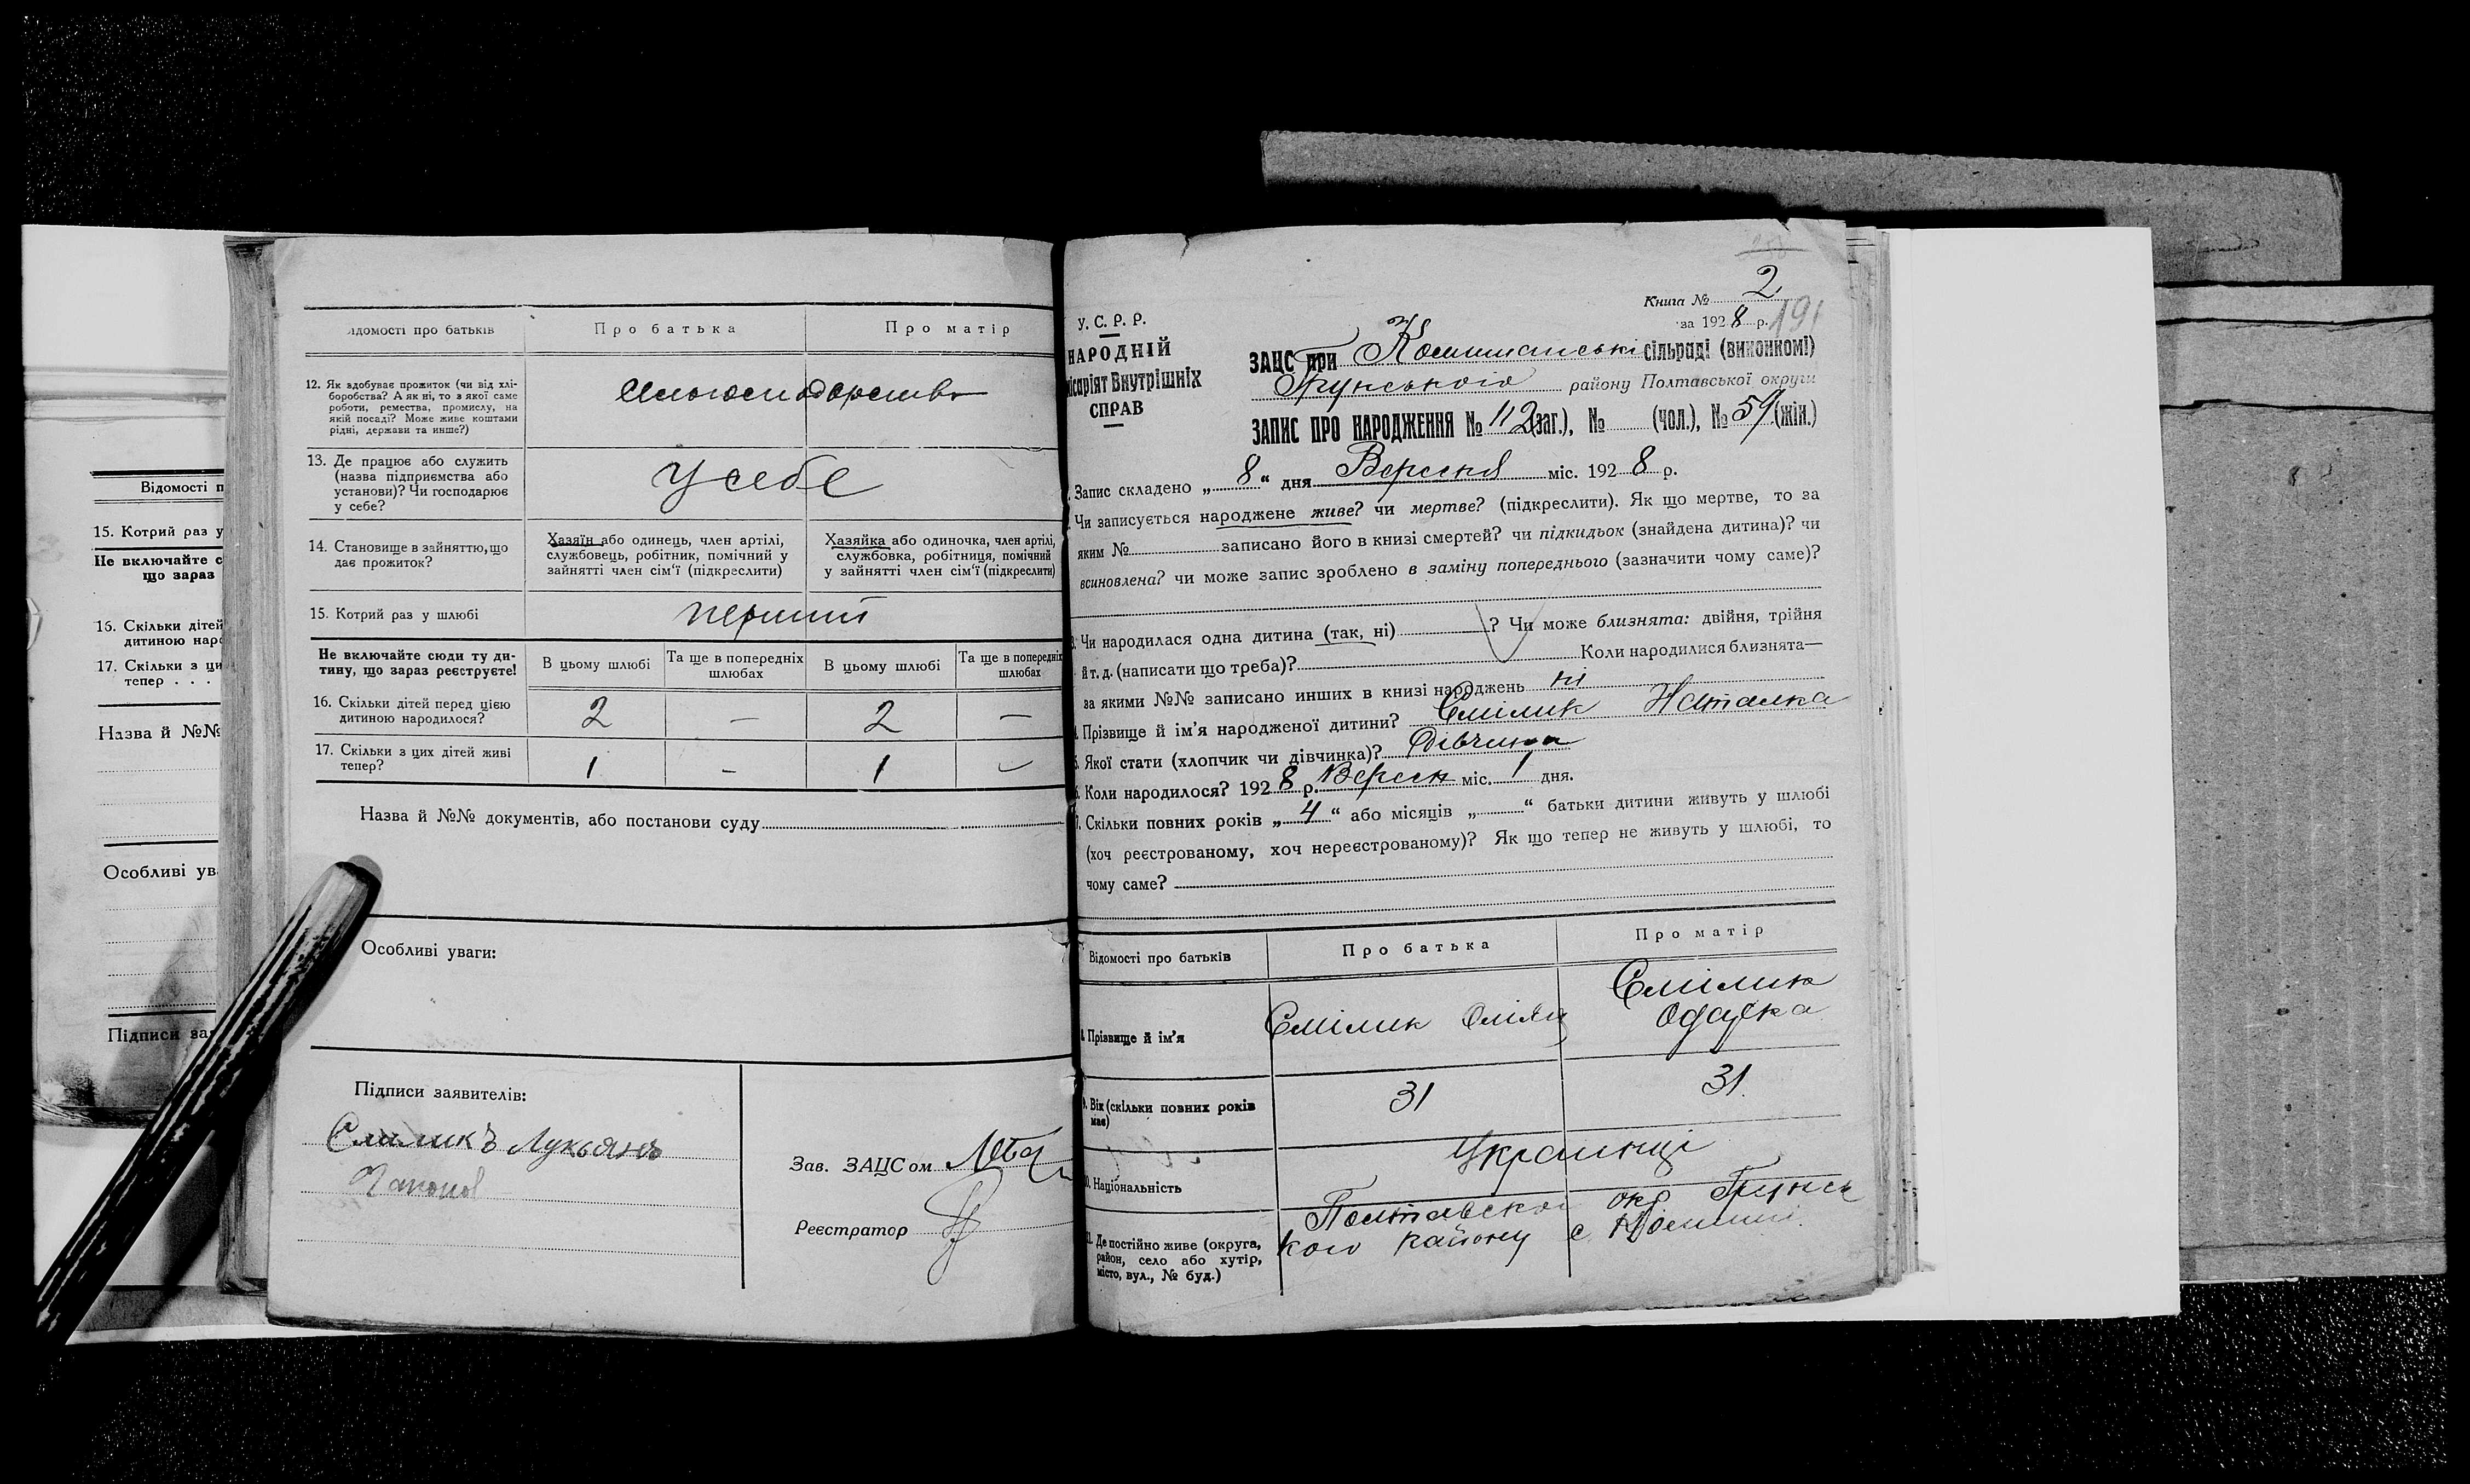 Відомості п
15. Котрий раз у
Не включайте с
що зараз
16. Скільки дітей
дитиною наро
17. Скільки з ци
тепер . . .
Назва й №№
Особливі ув
Підписи за
ідомості про батьків
Про батька
Про матір
12. Як здобуває прожиток (чи від хлі-
боробства? А як ні, то з якої саме
роботи, ремества, промислу, на
якій посаді? Може живе коштами
рідні, держави та инше?)
13. Де працює або служить
(назва підприємства або
установи)? Чи господарює
у себе?
у себе
14. Становище в зайняттю, що
дає прожиток?
Хазяїн або одинець, член артілі,
службовець, робітник, помічний у
зайнятті член сім'ї (підкреслити)
Хазяйка або одиночка, член артілі,
службовка, робітниця, помічний
у зайнятті член сім'ї (підкреслити)
15. Котрий раз у шлюбі
перший
Не включайте сюди ту ди-
тину, що зараз реєструєте!
В цьому шлюбі
Та ще в попередніх
шлюбах
В цьому шлюбі
Та ще в попередніх
шлюбах
16. Скільки дітей перед цією
дитиною народилося?
2 — 2 —
17. Скільки з цих дітей живі
тепер?
1 — 1 —
Назва й №№ документів, або постанови суду
Особливі уваги:
Підписи заявителів:
Смиликъ Лукьянъ
Зав. ЗАЦСом
Реєстратор
Книга № 2
за 1928 р. 191
У. С. Р. Р.
НАРОДНІЙ
місаріят Внутрішніх
СПРАВ
ЗАЦС при Комишанські сільраді (виконкомі)
Грунського району Полтавської округи
ЗАПИС ПРО НАРОДЖЕННЯ № 112 (заг.), № (чол.), № 59 (жін.)
Запис складено „ 8 “ дня Вересня міс. 1928 р.
Чи записується народжене живе? чи мертве? (підкреслити). Як що мертве, то за
яким № записано його в книзі смертей? чи підкидьок (знайдена дитина)? чи
всиновлена? чи може запис зроблено в заміну попереднього (зазначити чому саме)?
3. Чи народилася одна дитина (так, ні) ? Чи може близнята: двійня, трійня
й т. д. (написати що треба)? Коли народилися близнята—
за якими №№ записано инших в книзі народжень ні
4. Прізвище й ім'я народженої дитини? Смілик Наталка
5. Якої стати (хлопчик чи дівчинка)? Дівчина
6. Коли народилося? 1928 р. Вересн міс. 1 дня.
7. Скільки повних років „ 4 “ або місяців „ “ батьки дитини живуть у шлюбі
(хоч реєстрованому, хоч нереєстрованому)? Як що тепер не живуть у шлюбі, то
чому саме?
Відомості про батьків
Про батька
Про матір
8. Прізвище й ім'я
Смілик
Смілик
Одарка
9. Вік (скільки повних років
має)
31
31
10. Національність
Українці
11. Де постійно живе (округа,
район, село або хутір,
місто, вул., № буд.)
Полтавской окр Грунсь
кого району с.